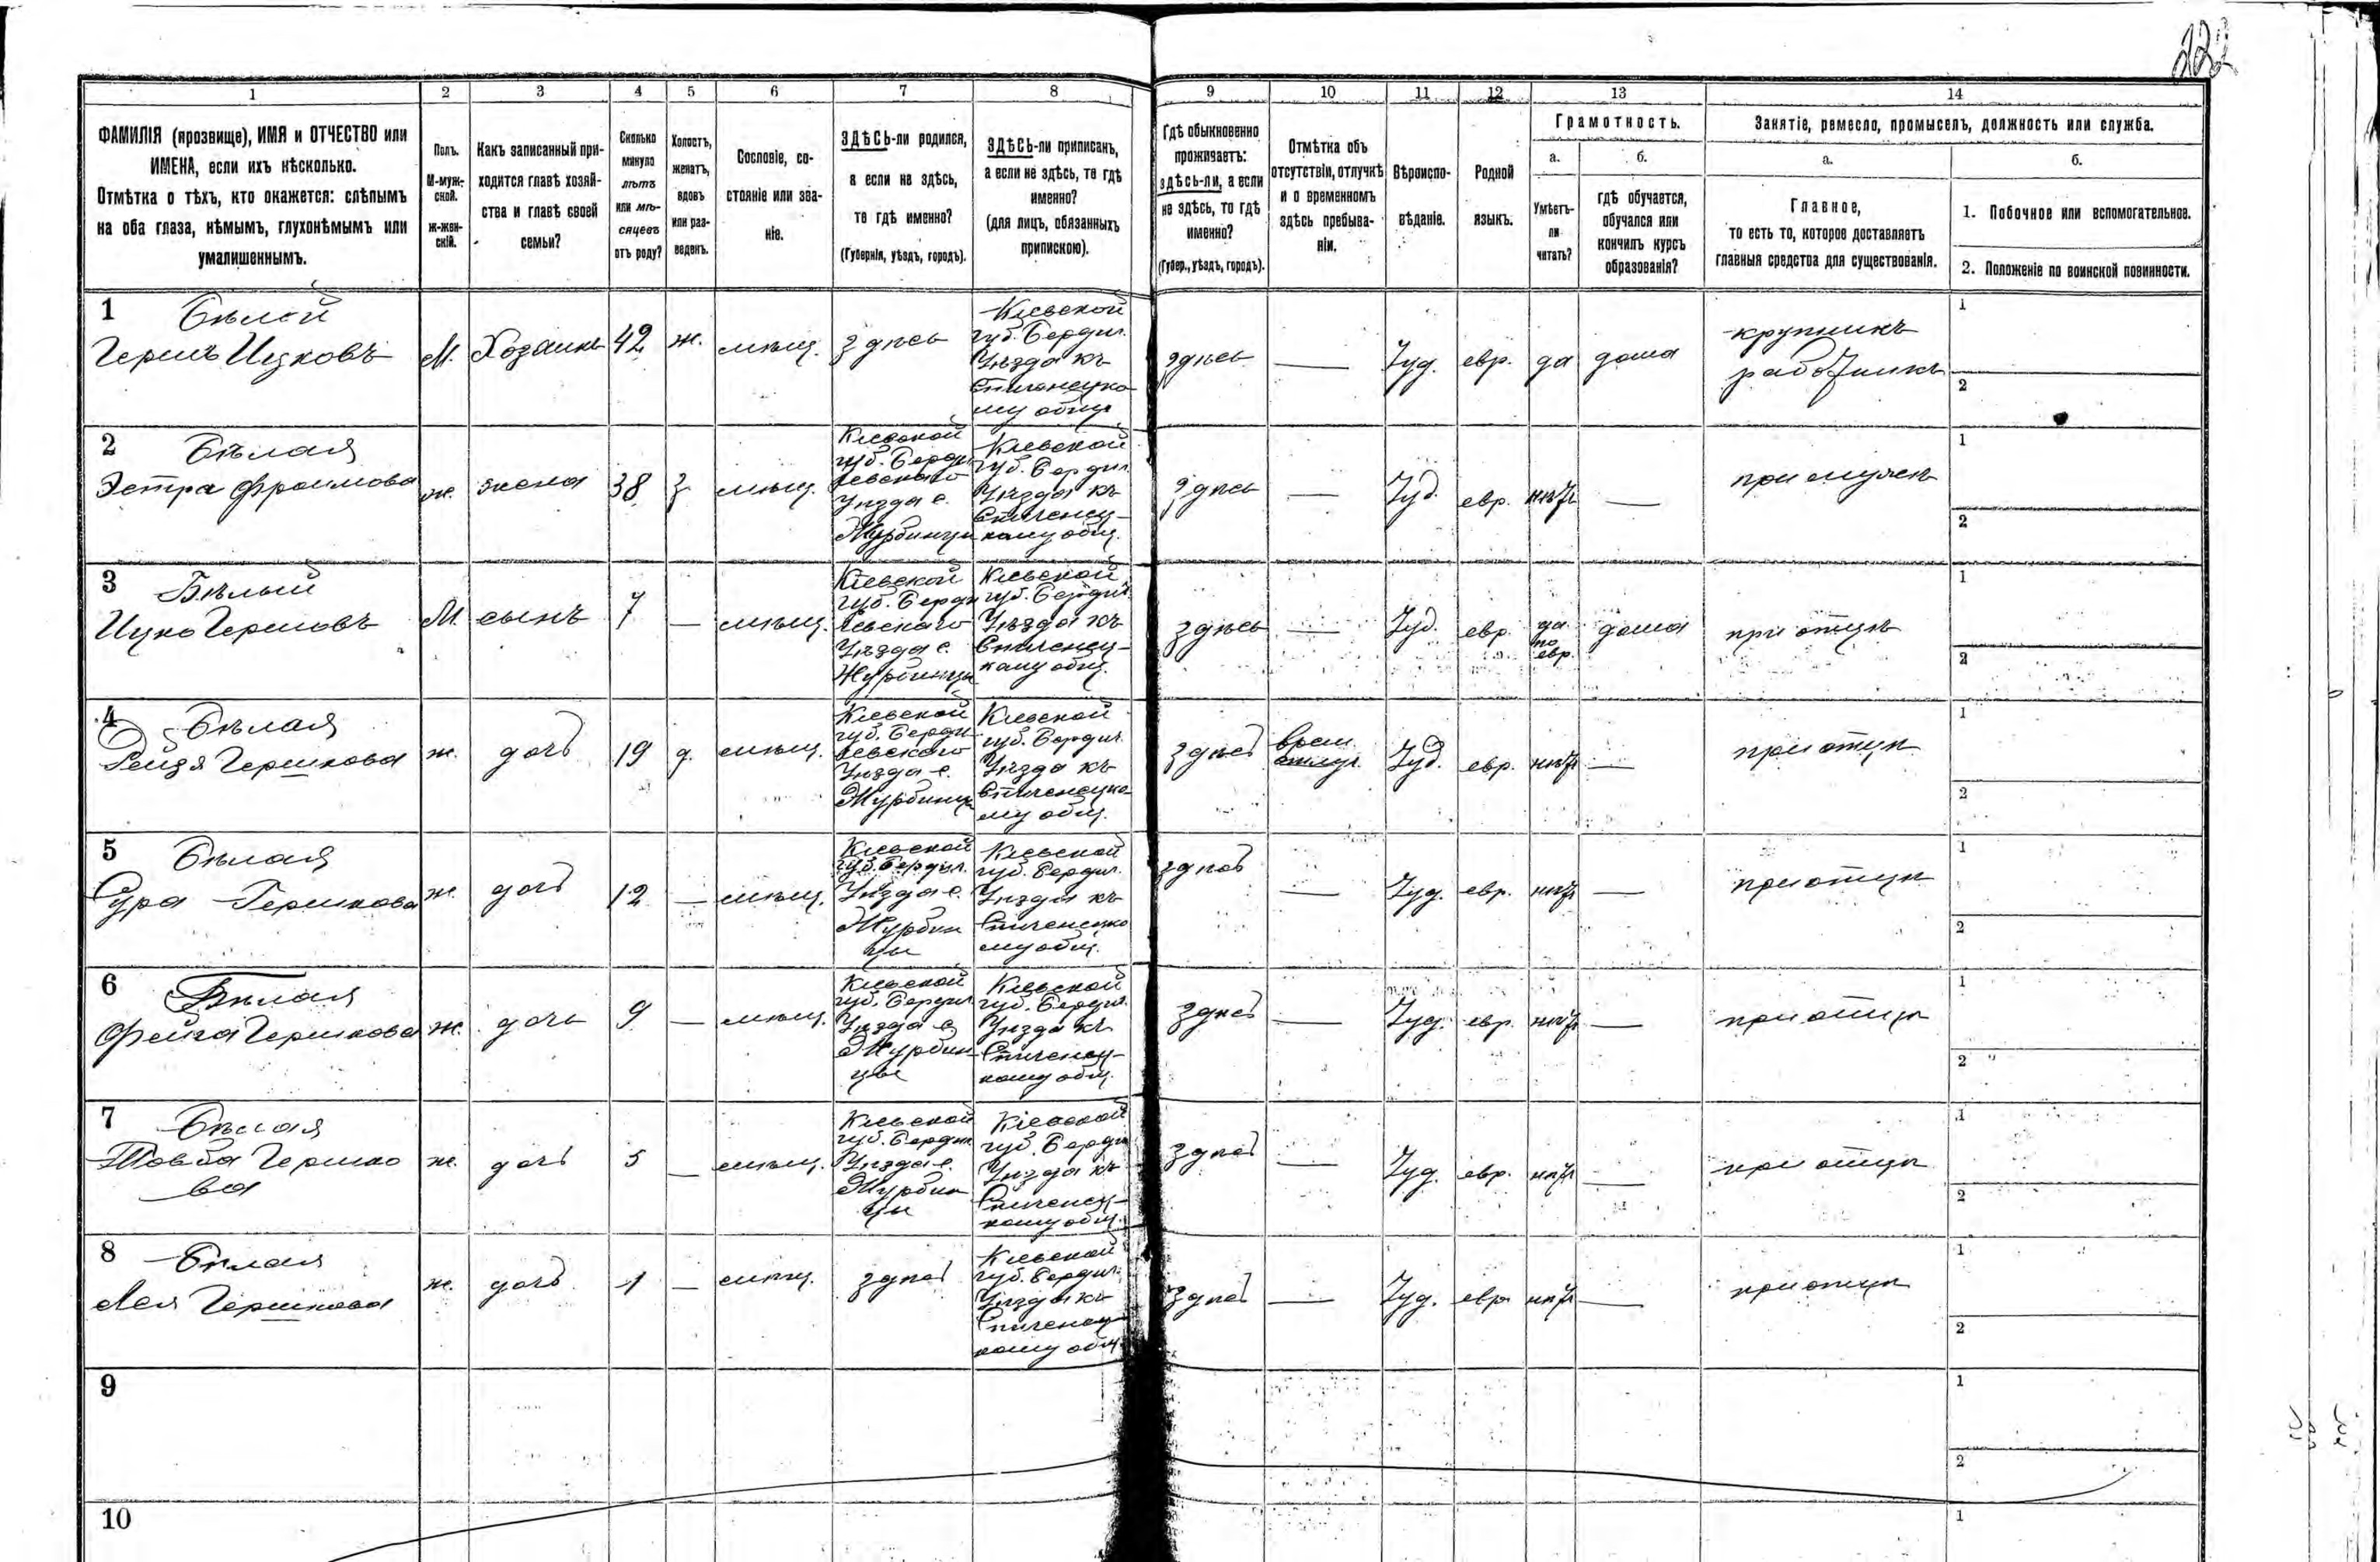 232
1
2
3
4
5
6
7
8
9
10
11
12
13
14
ФАМИЛІЯ (прозвище), ИМЯ и ОТЧЕСТВО или
ИМЕНА, если ихъ нѣсколько.
Отмѣтка о тѣхъ, кто окажется: слѣпымъ
на оба глаза, нѣмымъ, глухонѣмымъ или
умалишеннымъ.
Полъ.
М-муж-
ской.
ж-жен-
скій.
Какъ записанный при-
ходится главѣ хозяй-
ства и главѣ своей
семьи?
Сколько
минуло
лѣтъ
или мѣ-
сяцевъ
отъ роду?
Холостъ,
женатъ,
вдовъ
или раз-
веденъ.
Сословіе, со-
стояніе или зва-
ніе.
ЗДѢСЬ-ли родился,
а если не здѣсь,
то гдѣ именно?
(Губернія, уѣздъ, городъ).
ЗДѢСЬ-ли приписанъ,
а если не здѣсь, то гдѣ
именно?
(для лицъ, обязанныхъ
припискою).
Гдѣ обыкновенно
проживаетъ:
здѣсь-ли, а если
не здѣсь, то гдѣ
именно?
(Губер., уѣздъ, городъ).
Отмѣтка объ
отсутствіи, отлучкѣ
и о временномъ
здѣсь пребыва-
ніи.
Вѣроиспо-
вѣданіе.
Родной
языкъ.
Грамотность.
а.
Умѣетъ-
ли
читать?
б.
гдѣ обучается,
обучался или
кончилъ курсъ
образованія?
Занятіе, ремесло, промыселъ, должность или служба.
а.
Главное,
то есть то, которое доставляетъ
главныя средства для существованія.
б.
1. Побочное или вспомогательное.
2. Положеніе по воинской повинности.
1 Бѣлой
Гершъ Ицковъ
М.
Хозаинъ
42
ж.
мѣщ.
здѣсь
Кіевской
губ. Бердич.
Уѣзда къ
Спиченецко-
му общ.
здѣсь
—
Іуд.
евр.
да
дома
крупникъ
работникъ
1
2
2 Бѣлая
Эстра Фроимова
ж.
жена
38
з
мѣщ.
Кіевской
губ. Берди
чевскаго
Уѣзда с.
Журбинцы
Кіевской
губ. Бердич.
Уѣзда къ
Спиченец-
кому общ.
здѣсь
—
Іуд.
евр.
нѣт
—
при мужѣ
1
2
3 Бѣлый
Ицко Гершовъ
М.
сынъ
7
—
мѣщ.
Кіевской
губ. Берди
чевскаго
Уѣзда с.
Журбинцы
Кіевской
губ. Бердич.
Уѣзда къ
Спиченец-
кому общ.
здѣсь
—
Іуд.
евр.
да
по
евр.
дома
при отцѣ
1
2
4 Бѣлая
Рейзя Гершкова
ж.
дочь
19
д.
мѣщ.
Кіевской
губ. Берди
чевскаго
Уѣзда с.
Журбинцы
Кіевской
губ. Бердич.
Уѣзда къ
Спиченецко-
му общ.
здѣсь
врем.
отлуч.
Іуд.
евр.
нѣт
—
при отцѣ
1
2
5 Бѣлая
Сура Гершкова
ж.
дочь
12
—
мѣщ.
Кіевской
губ. Бердич.
Уѣзда с.
Журбин
цы
Кіевской
губ. Бердич.
Уѣзда къ
Спиченецко
му общ.
здѣсь
—
Іуд.
евр.
нѣт
—
при отцѣ
1
2
6 Бѣлая
Фейга Гершкова
ж.
дочь
9
—
мѣщ.
Кіевской
губ. Бердич
Уѣзда с
Журбин
цы
Кіевской
губ. Бердич.
Уѣзда къ
Спиченец-
кому общ.
здѣсь
—
Іуд.
евр.
нѣт
—
при отцѣ
1
2
7 Бѣлая
Товба Гершко
ва
ж.
дочь
5
—
мѣщ.
Кіевской
губ. Бердич
Уѣзда с.
Журбин
цы
Кіевской
губ. Бердич
Уѣзда къ
Спиченец-
кому общ.
здѣсь
—
Іуд.
евр.
нѣт
—
при отцѣ
1
2
8 Бѣлая
Лея Гершкова
ж.
дочь
1
—
мѣщ.
здѣсь
Кіевской
губ. Бердич.
Уѣзда къ
Спиченец-
кому общ.
здѣсь
—
Іуд.
евр
нѣт
—
при отцѣ
1
2
9
1
2
10
1